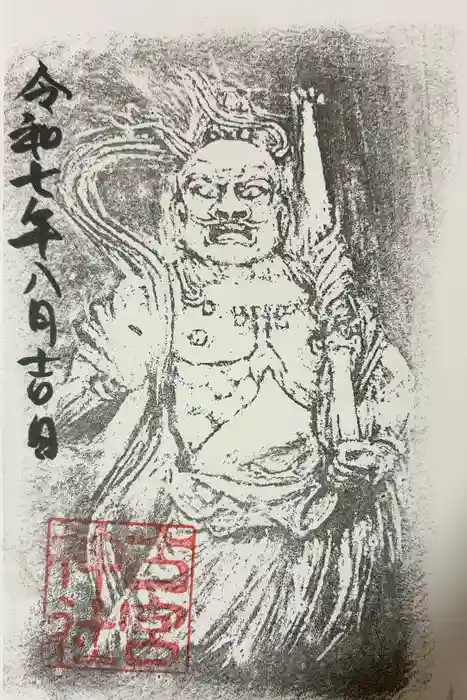 令和七年八月吉日
宮
神社